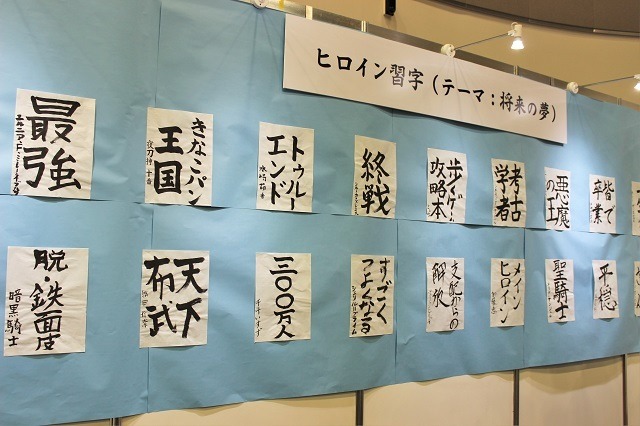 ヒロイン習字（テーマ：将来の夢）
最強
きなこパン
王国
夜刀神十香
トゥルー
エンド
終戦
攻略本
考古
学者
悪魔
皆で
卒業
脱・鉄面皮
暗黒騎士
天下
布武
三〇〇万人
すごく
つよくなる
支配からの
メイン
ヒロイン
聖騎士
平穏